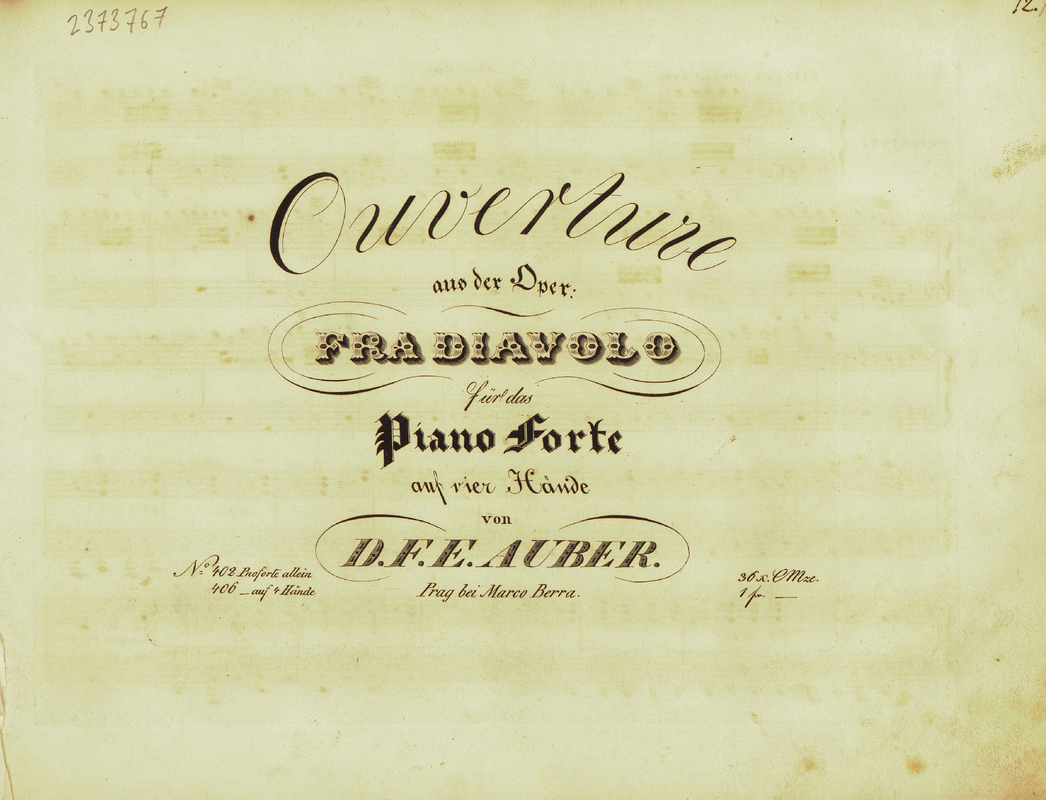 2373767
12.
Ouverture
aus der Oper:
FRA DIAVOLO
für das
Piano Forte
auf vier Hände
von
D.F.E. AUBER.
No. 402 Pnoforte allein
406 _ auf 4 Hände
Prag bei Marco Berra.
36 x. CMze.
1 fr. —